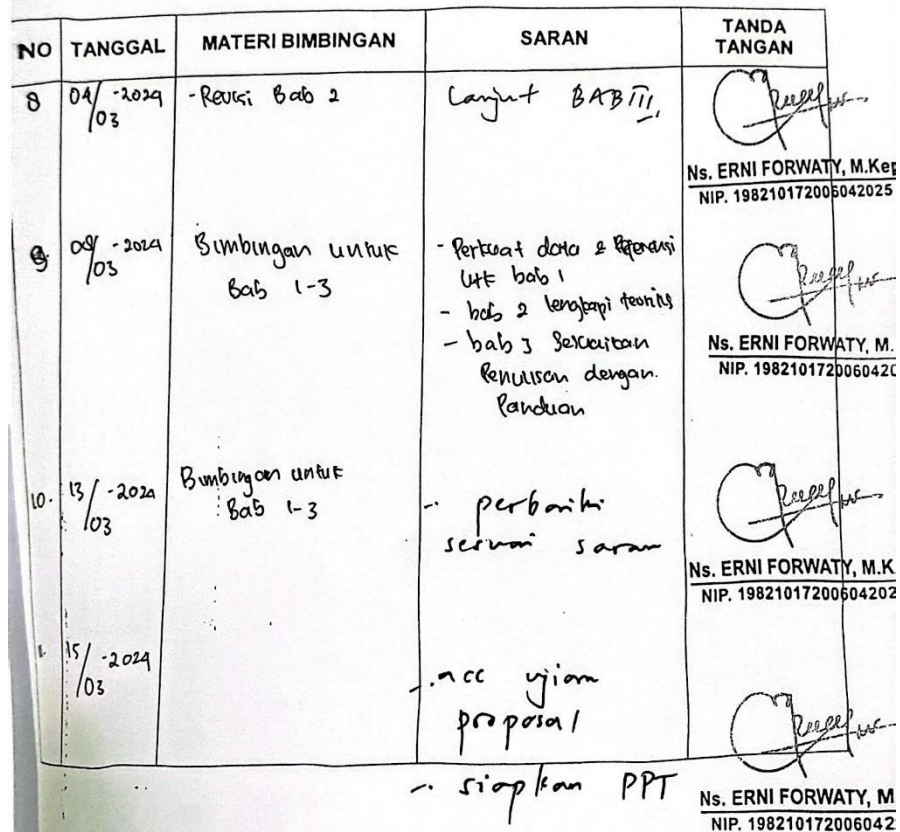 NO TANGGAL MATERI BIMBINGAN SARAN TANDA TANGAN
8 04/03-2024 - Revisi Bab 2 Lanjut BAB III
Ns. ERNI FORWATY, M.Kep
NIP. 198210172006042025
9. 08/03-2024 Bimbingan untuk Bab 1-3
- Perkuat data & Referensi
utk bab 1
- bab 2 lengkapi teoritis
- bab 3 Sesuaikan
Penulisan dengan
Panduan
Ns. ERNI FORWATY, M.
NIP. 1982101720060420
10. 13/03-2024 Bimbingan untuk Bab 1-3
- perbaiki
sesuai saran
Ns. ERNI FORWATY, M.K
NIP. 19821017200604202
1. 15/03-2024
- acc ujian
proposal
- siapkan PPT
Ns. ERNI FORWATY, M
NIP. 198210172006042